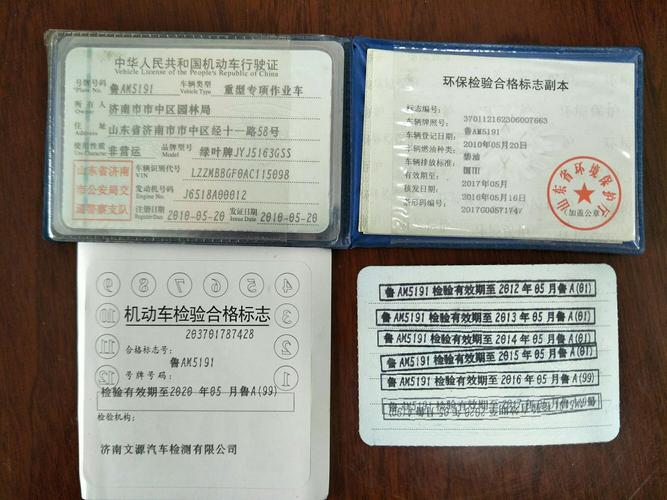 中华人民共和国机动车行驶证
Vehicle License of the People's Republic of China
号牌号码 鲁AM5191 车辆类型 重型专项作业车
Plate No. Vehicle Type
所有人 济南市市中区园林局
Owner
住址 山东省济南市市中区经十一路58号
Address
使用性质 非营运 品牌型号 绿叶牌JYJ5163GSS
Use Character Model
山东省济南
市公安局交
通警察支队
车辆识别代号 LZZMBBGF0AC115098
VIN
发动机号码 J6518A00012
Engine No.
注册日期 2010-05-20 发证日期 2010-05-20
Register Date Issue Date
环保检验合格标志副本
标志编号:
车辆牌照号: 370112162306007663
车辆登记日期: 鲁AM5191
车辆燃油种类: 2010年05月20日
车辆排放标准: 柴油
有效期至: 国III
核发日期: 2017年05月
条形码编号: 2016年05月16日
2017G0057174
山东省环境保护厅
(加盖公章)
机动车检验合格标志
203701787428
合格标志号:
鲁AM5191
号牌号码:
检验有效期至2020 年05 月鲁A(99)
检验机构:
济南文源汽车检测有限公司
9 8 7 6 5 4
10 3
11 2
12 1
鲁 AM5191 检验有效期至 2012 年 05 月鲁 A(01)
鲁 AM5191 检验有效期至 2013 年 05 月鲁 A(01)
鲁 AM5191 检验有效期至 2014 年 05 月鲁 A(01)
鲁 AM5191 检验有效期至 2015 年 05 月鲁 A(01)
鲁 AM5191 检验有效期至 2016 年 05 月鲁 A(99)